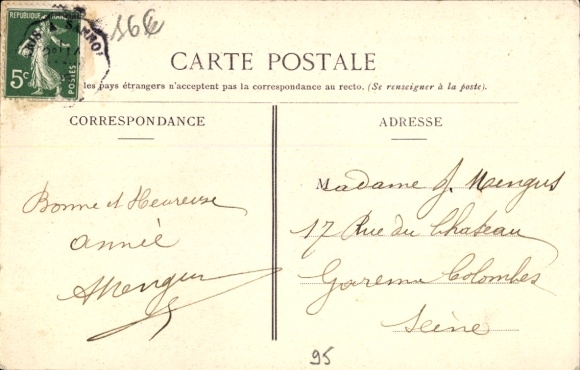 REPUBLIQUE FRANCAISE
5c
POSTES
CARTE POSTALE
les pays étrangers n'acceptent pas la correspondance au recto. (Se renseigner à la poste).
CORRESPONDANCE
Bonne et Heureuse
année
AMengus
ADRESSE
Madame J. Mengus
17 Rue du Chateau
Garenne Colombes
Seine
95